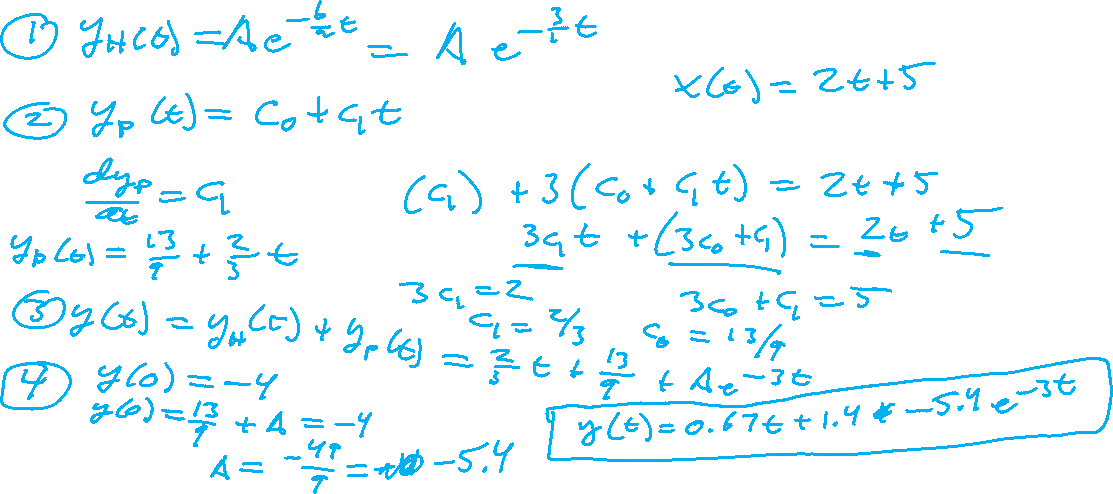 ① y_H(t) = A e^{-\frac{b}{a}t} = A e^{-\frac{3}{1}t}
x(t) = 2t+5
② y_p(t) = C_0 + C_1 t
\frac{dy_p}{dt} = C_1
(C_1) + 3(C_0 + C_1 t) = 2t+5
3C_1 t + (3C_0 + C_1) = 2t + 5
y_p(t) = \frac{13}{9} + \frac{2}{3} t
3C_1 = 2
3C_0 + C_1 = 5
C_1 = 2/3
C_0 = 13/9
③ y(t) = y_H(t) + y_p(t) = \frac{2}{3} t + \frac{13}{9} + A e^{-3t}
④ y(0) = -4
y(0) = \frac{13}{9} + A = -4
A = \frac{-49}{9} = -5.4
y(t) = 0.67t + 1.4 - 5.4 e^{-3t}